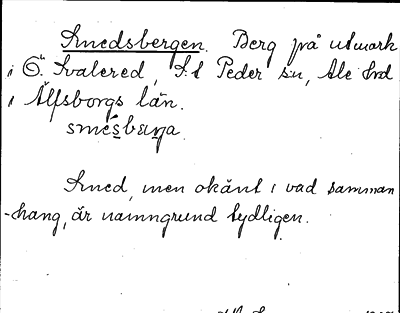 Smedsbergen. Berg på utmark
i Ö. Svalered, S:t Peder sn, Ale hrd
i Älfsborgs län.
smésbærja
Smed, men okänt i vad samman
-hang, är namngrund tydligen.